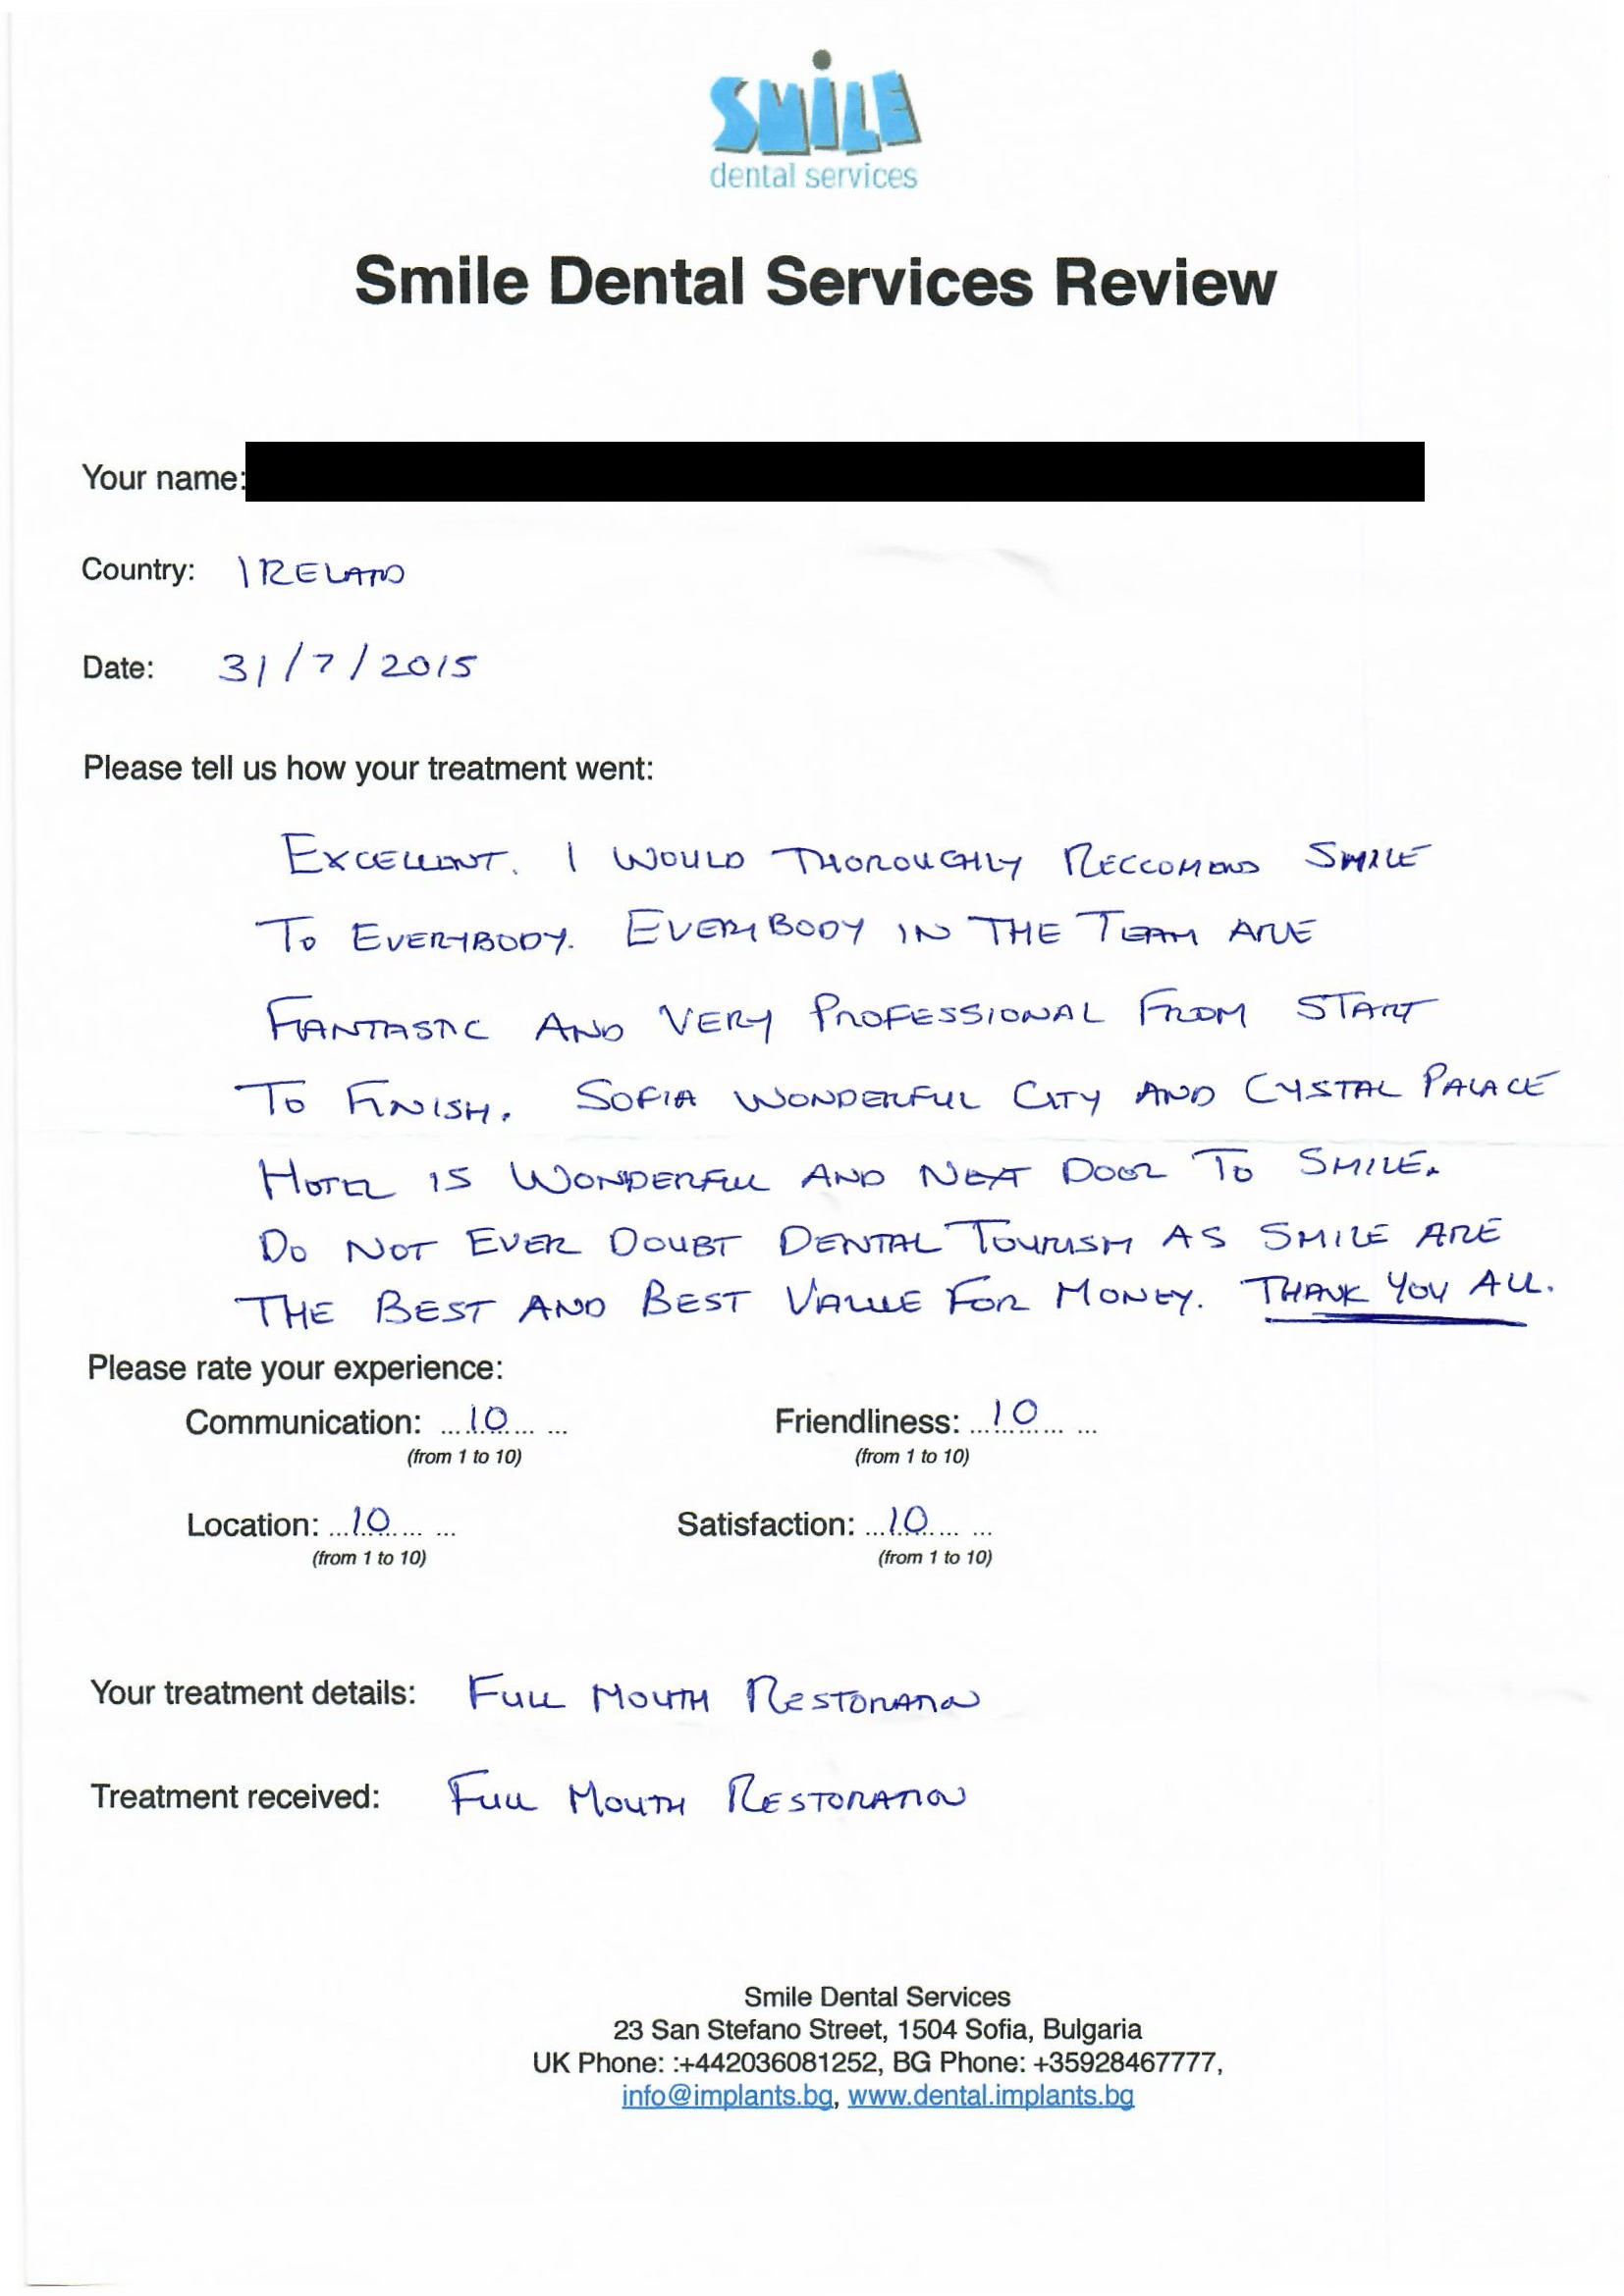 SMILE
dental services
Smile Dental Services Review
Your name:
Country: IRELAND
Date: 31/7/2015
Please tell us how your treatment went:
EXCELLENT. I WOULD THOROUGHLY RECCOMEND SMILE
TO EVERYBODY. EVERYBODY IN THE TEAM ARE
FANTASTIC AND VERY PROFESSIONAL FROM START
TO FINISH. SOFIA WONDERFUL CITY AND CYSTAL PALACE
HOTEL IS WONDERFUL AND NEXT DOOR TO SMILE.
DO NOT EVER DOUBT DENTAL TOURISM AS SMILE ARE
THE BEST AND BEST VALUE FOR MONEY. THANK YOU ALL.
Please rate your experience:
Communication: ...10... ... Friendliness: ...10... ...
(from 1 to 10) (from 1 to 10)
Location: ...10... ... Satisfaction: ...10... ...
(from 1 to 10) (from 1 to 10)
Your treatment details: FULL MOUTH RESTORATION
Treatment received: FULL MOUTH RESTORATION
Smile Dental Services
23 San Stefano Street, 1504 Sofia, Bulgaria
UK Phone: :+442036081252, BG Phone: +35928467777,
info@implants.bg, www.dental.implants.bg